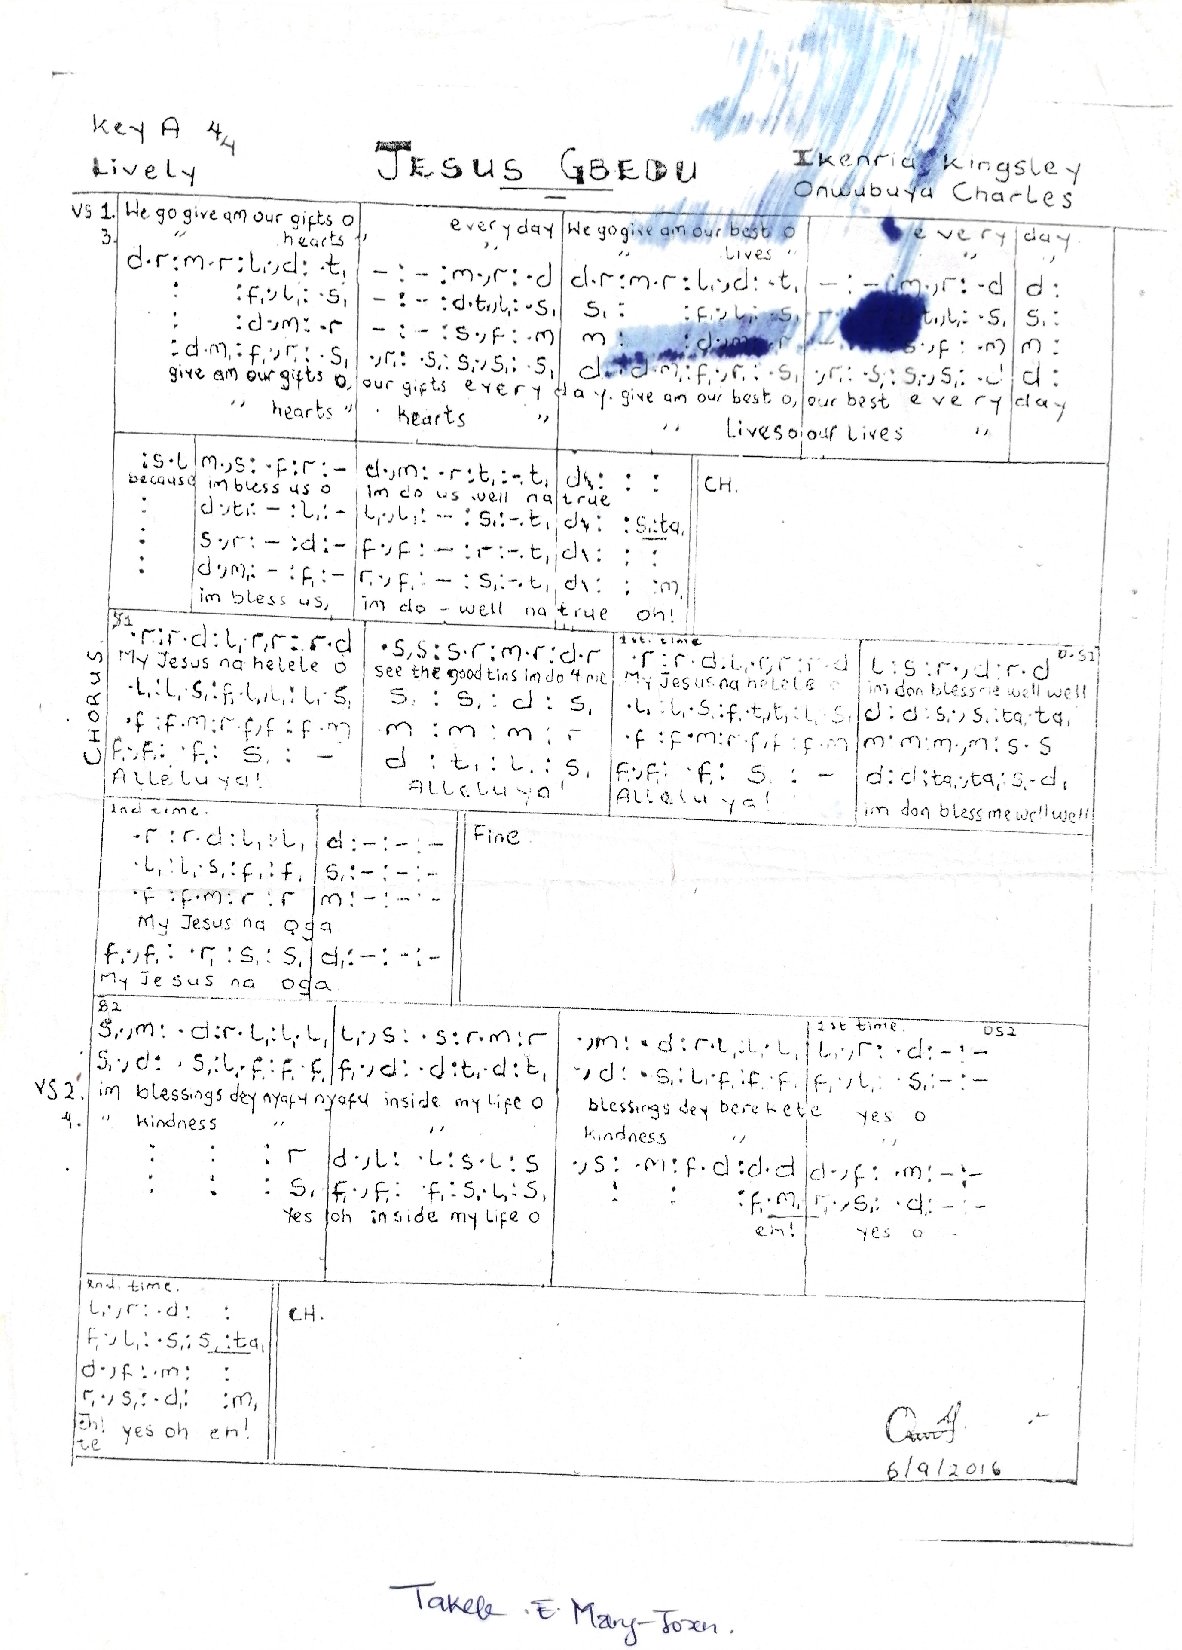 Key A 4/4
Lively
JESUS GBEDU
Ikenria Kingsley
Onwubuya Charles
VS 1. We go give am our gifts o every day We go give am our best o every day
3. " hearts " " " lives " " "
d.r:m.r:l,.,d: .t, - : - :m.,r: .d d.r:m.r:l,.,d: .t, - : - :m.,r: .d d:
: :f,.,l,: .s, - : - :d.t,.,l,: .s, s,: :f,.,l,: .s, s,:
: :d.,m: .r - : - :s.,f: .m m: m:
:d.m,:f,.,r,: .s, .,r,: .s,:s,.,s,: .s, d: d.m,:f,.,r,: .s, .,r,: .s,:s,.,s,: d:
give am our gifts o, our gifts every day. give am our best o, our best every day
" hearts " hearts " " lives o our lives "
:s.l m.,s: .f:r:- d.,m: .r:t,:-.t, d: : : CH.
because im bless us o im do us well na true
: d.,t,: - :l,:- l,.,l,: - :s,:-.t, d: :s,:ta,
: s.,r: - :d:- f.,f: - :r:-.t, d: : :
: d.,m,: - :f,:- r,.,f,: - :s,:-.t, d: : :m,
im bless us, im do - well na true oh!
CHORUS
S1 1st. time D.S1
.r:r.d:l,.r,r:r.d .s,s:s.r:m.r:d.r .r:r.d:l,.r,r:r.d l:s:r.,d:r.d
My Jesus na helele o see the good tins im do 4 me My Jesus na helele o im don bless me well well
.l,:l,.s,:f,.l,,l,:l,.s, s,:s,:d:s, .l,:l,.s,:f,.t,,t,:l,.s, d:d:s,.,s,:ta,.ta,
.f:f.m:r.f,f:f.m m:m:m:r .f:f.m:r.f,f:f.m m:m:m.,m:s.s
f,.,f,: .f,:s,:- d:t,:l,:s, f,.,f,: .f,:s,:- d:d:ta,.,ta,:s,.d,
Alleluya! Alleluya! Alleluya! im don bless me well well
2nd time.
.r:r.d:l,:l, d:-:-:- Fine
.l,:l,.s,:f,:f, s,:-:-:-
.f:f.m:r:r m:-:-:-
My Jesus na oga
f,.,f,: .r,:s,:s, d,:-:-:-
My Jesus na oga
S2 1st time. DS2
s,.,m: .d:r.l,:l,.l, l,.,s: .s:r.m:r .,m: .d:r.l,:l,.l, l,.,r: .d:-:-
s,.,d: .s,:l,.f,:f,.f, f,.,d: .d:t,.d:t, .,d: .s,:l,.f,:f,.f, f,.,l,: .s,:-:-
VS 2. im blessings dey nyafu nyafu inside my life o blessings dey berekete yes o
4. " kindness " " kindness " "
: : :r d.,l: .l:s.l:s .,s: .m:f.d:d.d d.,f: .m:-:-
: : :s, f,.,f,: .f,:s,.l,:s, : : :f,.m, r,.,s,: .d:-:-
Yes oh inside my life o eh! yes o
2nd. time.
l,.,r: .d: : CH.
f,.,l,: .s,:s,:ta,
d.,f: .m: :
r,.,s,: .d,: :m,
eh! yes oh eh!
te
6/9/2016
Takele .E. Mary-